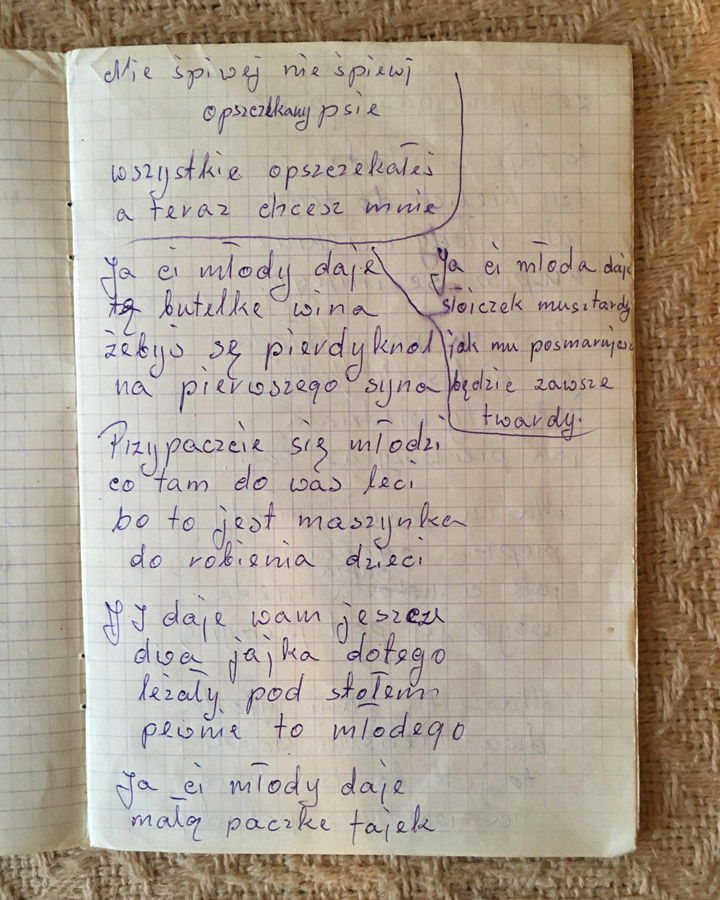 Nie śpiwej nie śpiewj
opszczekany psie
wszystkie opszczekałeś
a teraz chcesz mnie
Ja ci młody daje
tą butelkę wina
żebyś są pierdyknoł
na pierwszego syna
Ja ci młoda daje
słoiczek musztardy
jak mu posmarujesz
będzie zawsze
twardy.
Przypaczcie się młodzi
co tam do was leci
bo to jest maszynka
do robienia dzieci
JJ daje wam jeszcze
dwa jajka dotego
leżały pod stołem
pewnie to młodego
Ja ci młody daje
małą paczke fajek